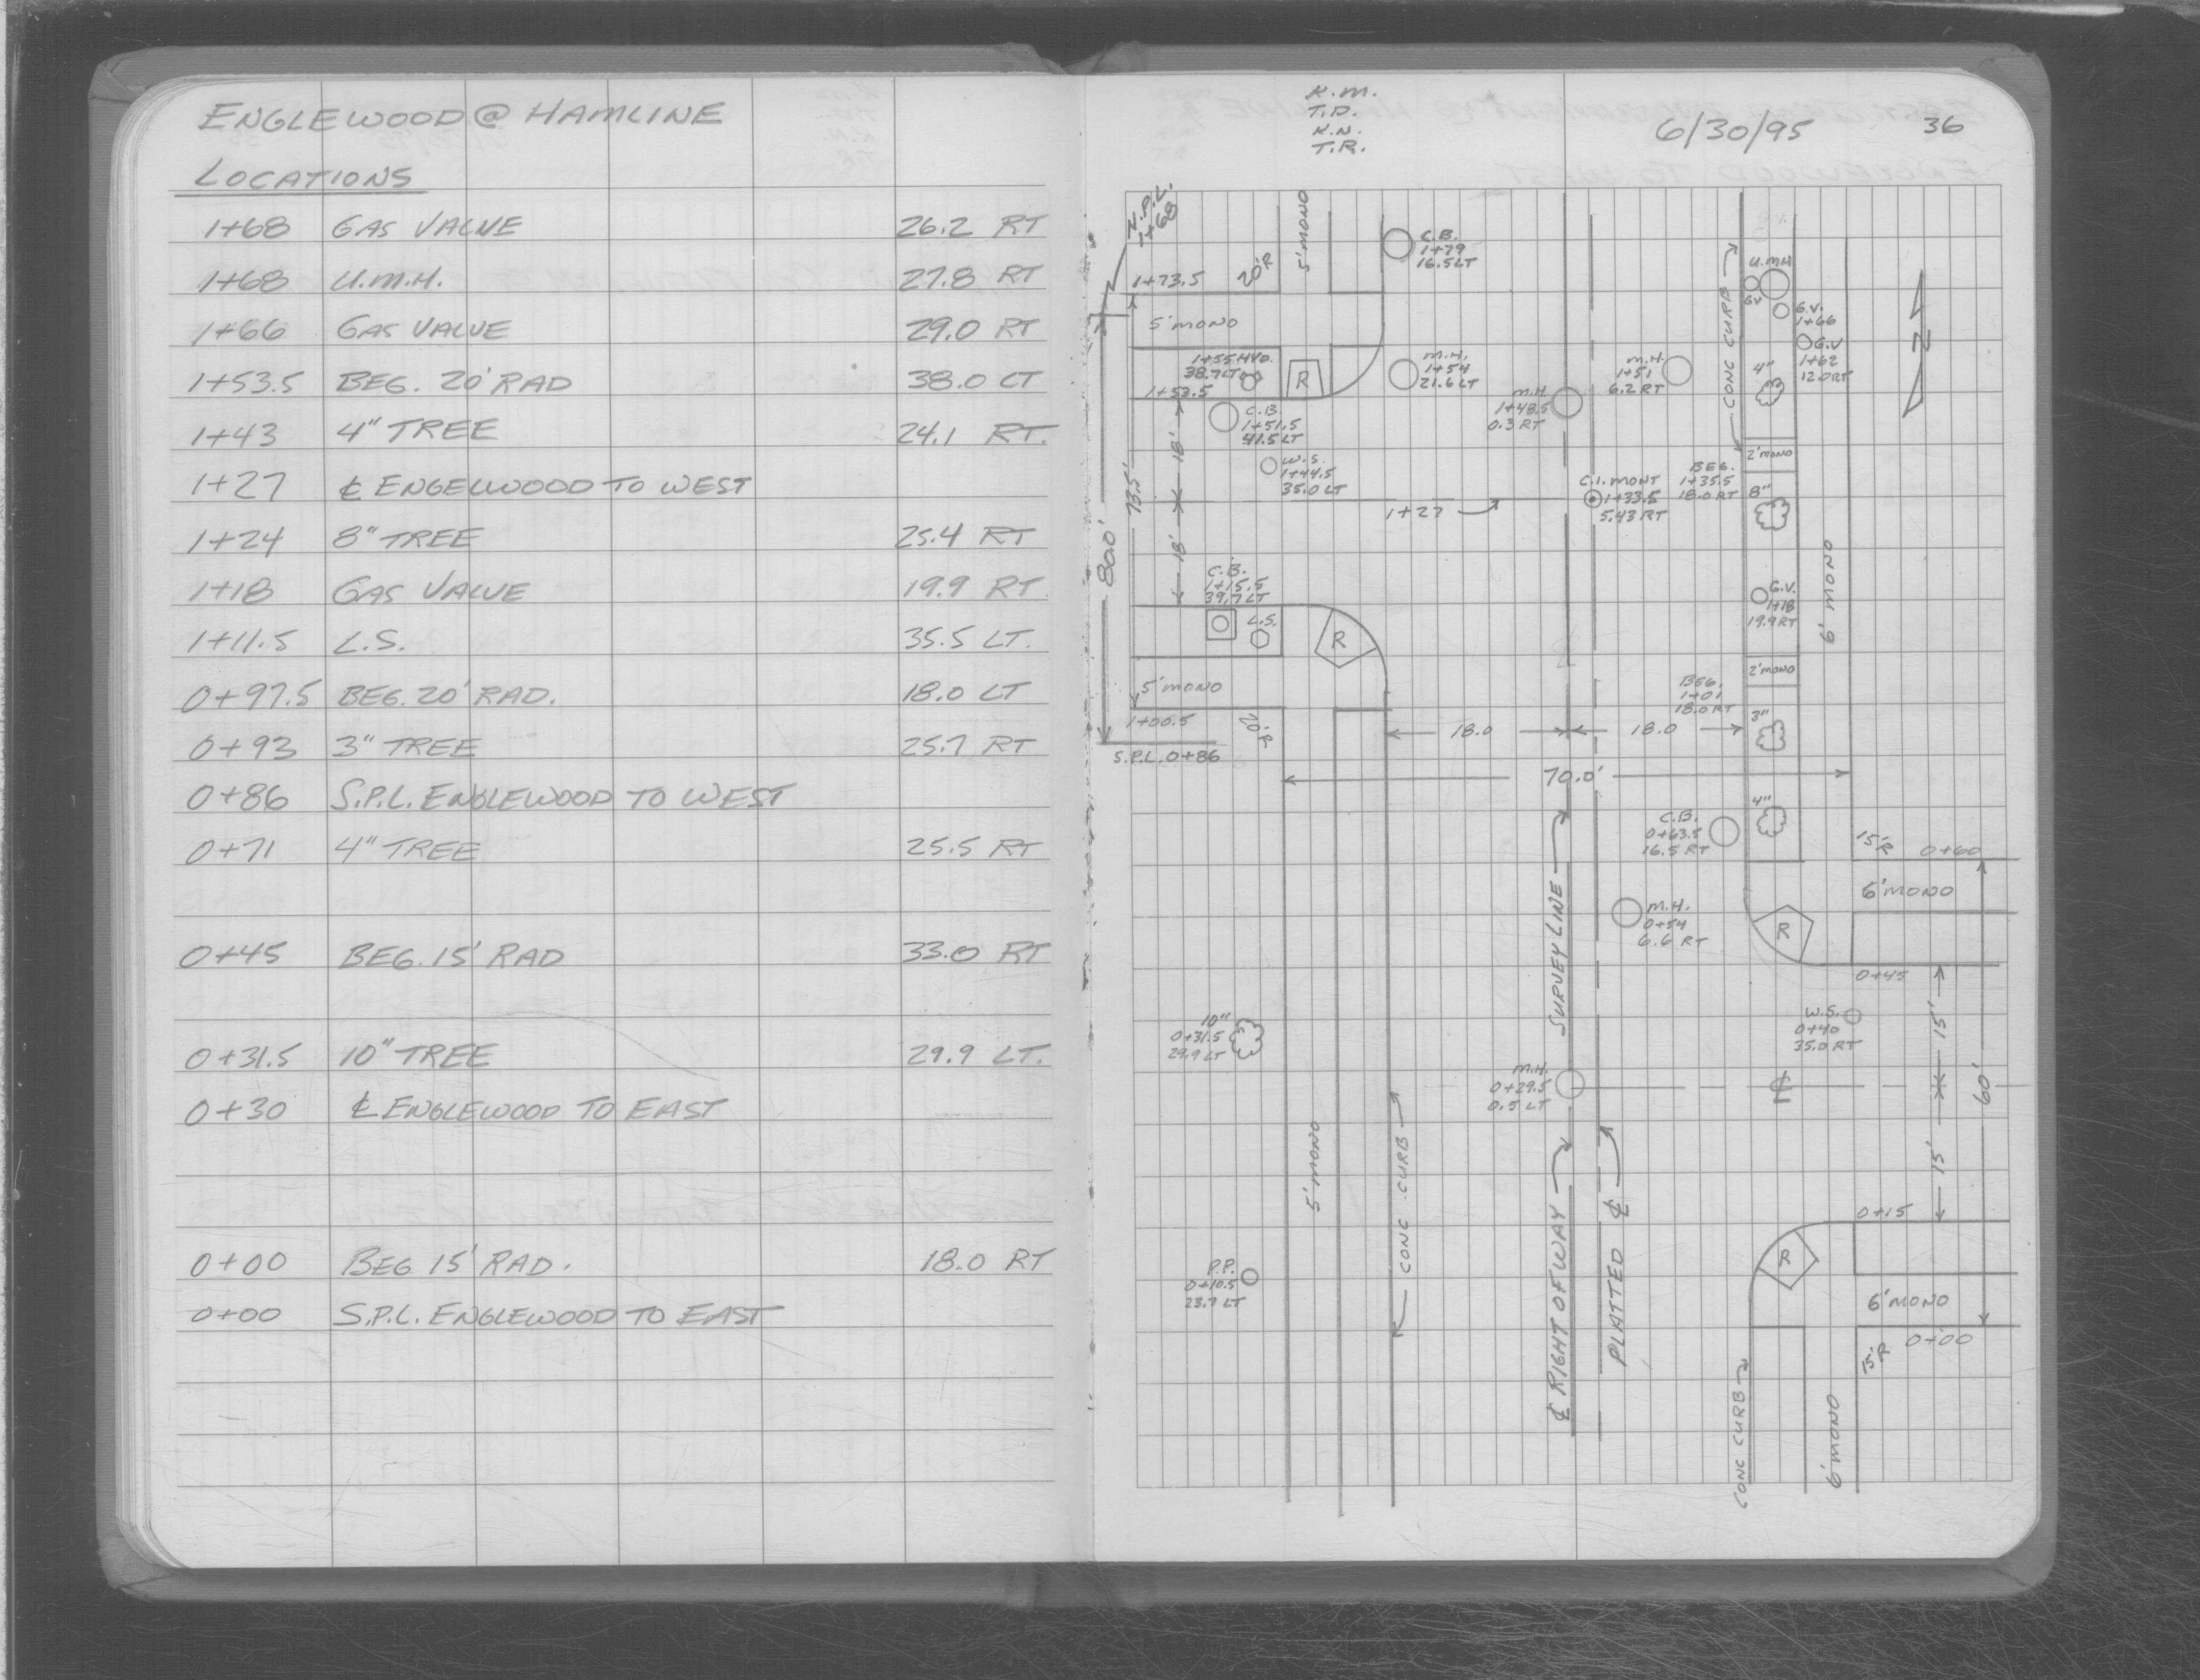 ENGLEWOOD @ HAMLINE
LOCATIONS
1+68 GAS VALVE 26.2 RT
1+68 U.M.H. 27.8 RT
1+66 GAS VALVE 29.0 RT
1+53.5 BEG. 20' RAD 38.0 LT
1+43 4" TREE 24.1 RT.
1+27 ℄ ENGELWOOD TO WEST
1+24 8" TREE 25.4 RT
1+18 GAS VALVE 19.9 RT
1+11.5 L.S. 35.5 LT.
0+97.5 BEG. 20' RAD. 18.0 LT
0+93 3" TREE 25.7 RT
0+86 S.P.L. ENGLEWOOD TO WEST
0+71 4" TREE 25.5 RT
0+45 BEG. 15' RAD 33.0 RT
0+31.5 10" TREE 29.9 LT.
0+30 ℄ ENGLEWOOD TO EAST
0+00 BEG 15' RAD. 18.0 RT
0+00 S.P.L. ENGLEWOOD TO EAST
K.M.
T.D.
K.N.
T.R.
6/30/95 36
N.P.L.
1+68
1+73.5
20'R
5' MONO
C.B.
1+79
16.5 LT
CONC CURB
U.MH
GV
G.V.
1+66
G.V
1+62
12.0 RT
N
5' MONO
1+55 HYD.
38.7 LT
1+53.5
R
M.H.
1+54
21.6 LT
M.H.
1+48.5
0.3 RT
M.H.
1+51
6.2 RT
4"
C.B.
1+51.5
41.5 LT
W.S.
1+44.5
35.0 LT
18'
73.5'
80.0'
18'
1+27
C.I. MONT
1+33.5
5.43 RT
BEG.
1+35.5
18.0 RT
2' MONO
8"
C.B.
1+15.5
39.7 LT
L.S.
R
G.V.
1+18
19.9 RT
6' MONO
5' MONO
1+00.5
20'R
S.P.L. 0+86
2' MONO
BEG.
1+01
18.0 RT
3"
18.0
18.0
70.0'
4"
C.B.
0+63.5
16.5 RT
15'R
0+60
6' MONO
SURVEY LINE
M.H.
0+54
6.6 RT
R
0+45
10"
0+31.5
29.9 LT
W.S.
0+40
35.0 RT
15'
M.H.
0+29.5
0.5 LT
℄
60'
15'
5' MONO
CONC. CURB
℄ RIGHT OF WAY
PLATTED ℄
0+15
R
6' MONO
0+00
15'R
P.P.
0+10.5
23.7 LT
CONC CURB
6' MONO